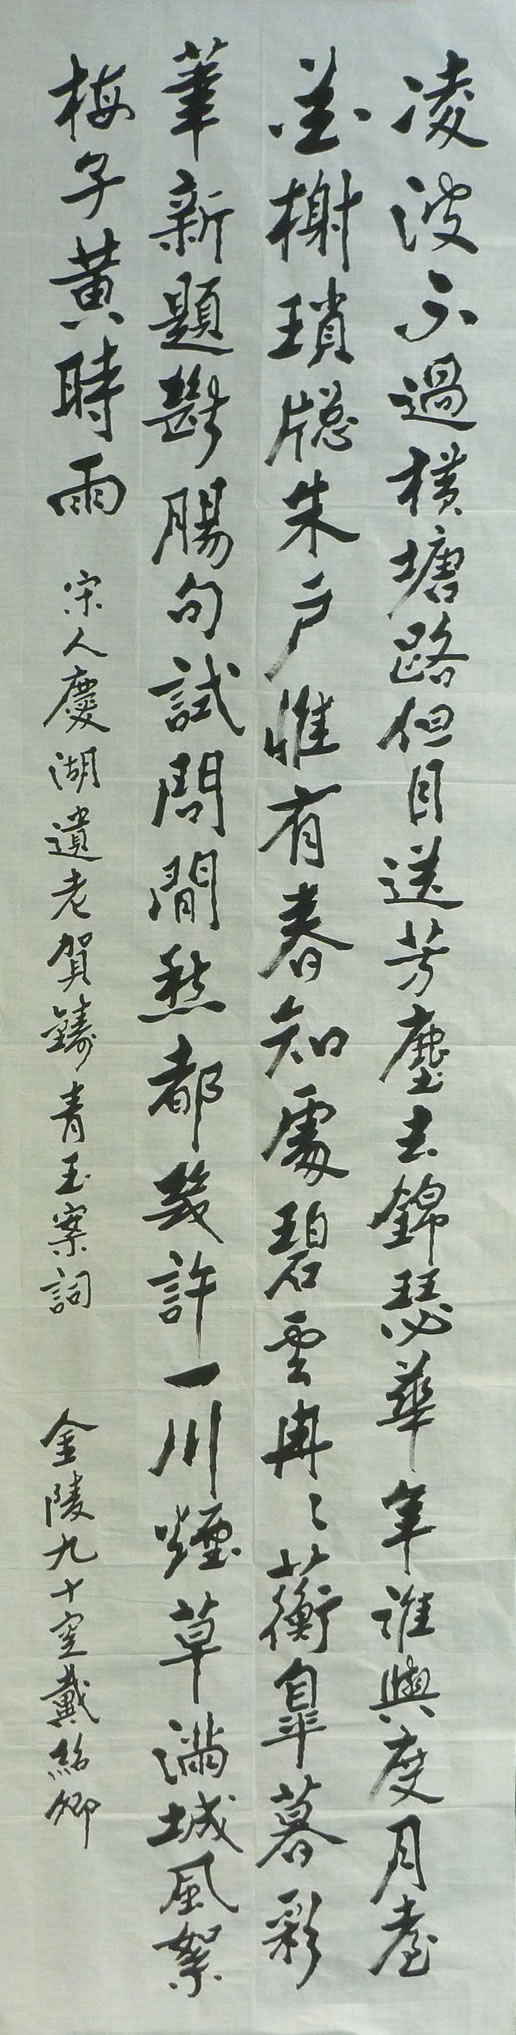 凌波不過橫塘路但目送芳塵去錦瑟華年誰與度月臺
花榭瑣窗朱户惟有春知處碧雲冉〻蘅皐暮彩
筆新題斷腸句試問閒愁都幾許一川煙草滿城風絮
梅子黃時雨
宋人慶湖遺老賀鑄青玉案詞
金陵九十叟戴紹卿